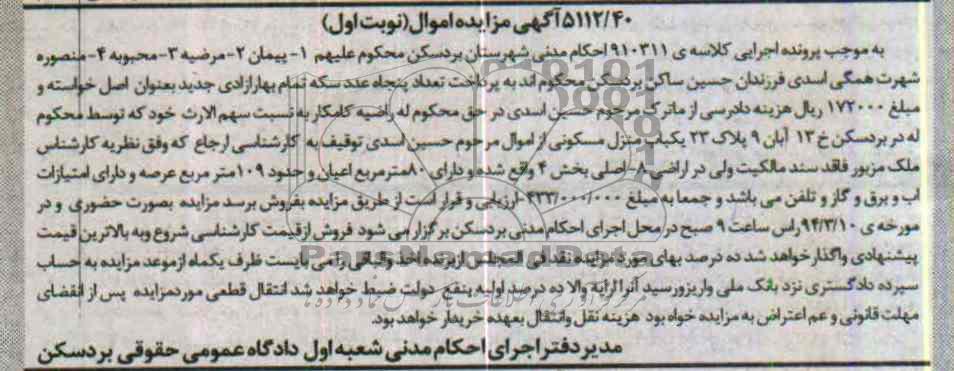 ۵۱۱۲/۴۰ آگهی مزایده اموال (نوبت اول)
به موجب پرونده اجرایی کلاسه ی ۹۱۰۳۱۱ احکام مدنی شهرستان بردسکن محکوم علیهم ۱- پیمان ۲- مرضیه ۳- محبوبه ۴- منصوره
شهرت همگی اسدی فرزندان حسین ساکن بردسکن محکوم اند به پرداخت تعداد پنجاه عدد سکه تمام بهار ازادی جدید بعنوان اصل خواسته و
مبلغ ۱۷۲۰۰۰ ریال هزینه دادرسی از ماترک مرحوم حسین اسدی در حق محکوم له راضیه کامکار به نسبت سهم الارث خود که توسط محکوم
له در بردسکن خ ۱۳ آبان ۹ پلاک ۲۳ یکباب منزل مسکونی از اموال مرحوم حسین اسدی توقیف به کارشناسی ارجاع که وفق نظریه کارشناس
ملک مزبور فاقد سند مالکیت ولی در اراضی ۸- اصلی بخش ۴ واقع شده و دارای ۸۰متر مربع اعیان و حدود ۱۰۹ متر مربع عرصه و دارای امتیازات
اب و برق و گاز و تلفن می باشد و جمعا به مبلغ ۴۲۳/۰۰۰/۰۰۰ ارزیابی و قرار است از طریق مزایده بفروش برسد مزایده بصورت حضوری و در
مورخه ی ۹۴/۳/۱۰ راس ساعت ۹ صبح در محل اجرای احکام مدنی بردسکن برگزار می شود فروش از قیمت کارشناسی شروع وبه بالاترین قیمت
پیشنهادی واگذار خواهد شد ده درصد بهای مورد مزایده نقد فی المجلس از برنده اخذ والباقی را می بایست ظرف یکماه از موعد مزایده به حساب
سپرده دادگستری نزد بانک ملی واریز ورسید آنرا ارایه والا ده درصد اولیه بنفع دولت ضبط خواهد شد انتقال قطعی موردمزایده پس از انقضای
مهلت قانونی و عم اعتراض به مزایده خواه بود هزینه نقل وانتقال بعهده خریدار خواهد بود.
مدیر دفتر اجرای احکام مدنی شعبه اول دادگاه عمومی حقوقی بردسکن
ParsNamadData